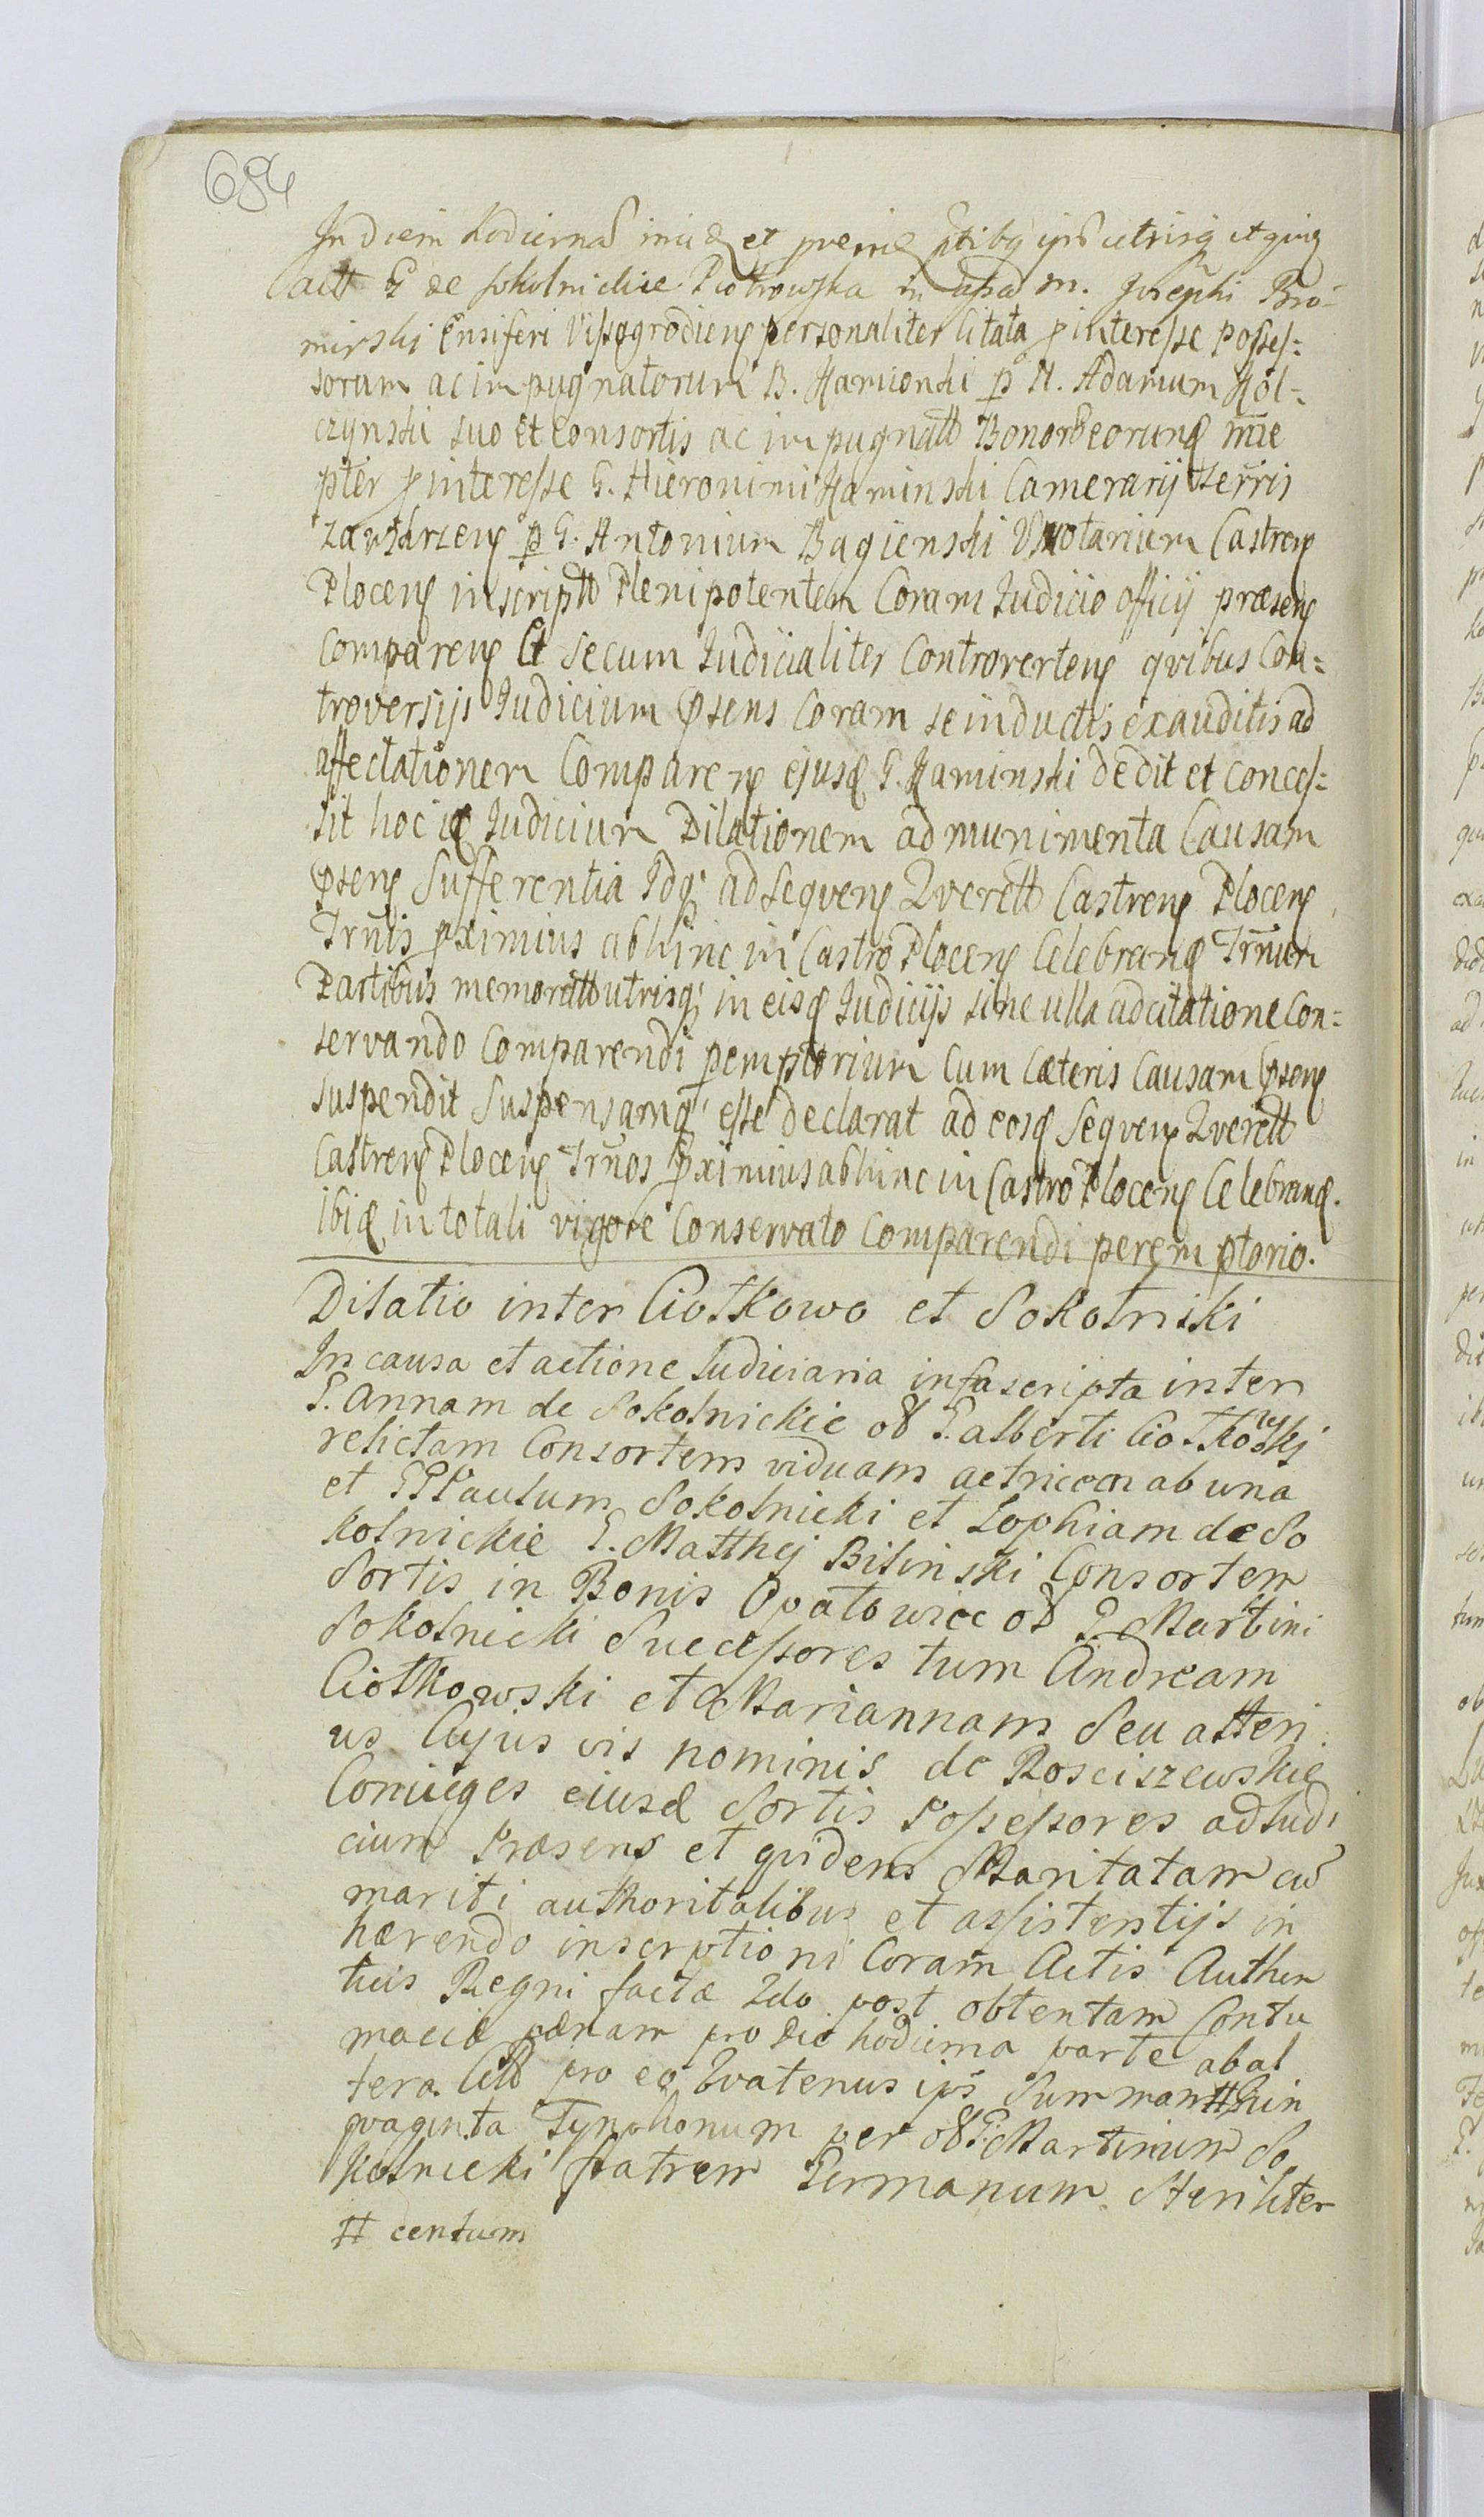 684
In diem hodiernam et ptibq ips utrisq
act G de Sokolnickie Piotrowska in M. Josephi Bro-
mirski Ensiferi Vissogrodiens personaliter Citata p interesse Posses=
sorum ac impugnatorum B. Kamionki p N. Adamum Kol=
czynski suo et Consortis ac impugnatt Bonor eorunq
pter p interesse G. Hieronimi Kaminski Camerarij Terris
Zawskrzens p G. Antonium Bagienski Vnotarium Castrens
Plocens inscriptt Plenipotentem Coram Judicio officij præsens
Comparens Et secum Judicialiter Controvertens qvibus Con=
troversijs Judicium Psens Coram se inductis exauditis ad
affectationem Comparens ejusd G. Kaminski dedit et Conces=
sit hoc id Judicium Dilationem ad munimenta Causam
Psens Sufferentia Idq; ad Seqvens Qverett Castrens Plocens
Trnis pximius abhinc in Castro Plocens Celebrand Trnum
Partibus memoratt utrisq; in eisd Judicijs sine ulla adcitatione Con=
servando Comparendi pemptorium Cum Cæteris Causam Psens
suspendit Suspensamq; esse declarat ad eosd Seqvens Qverett
Castrens Plocens Trnos Pximius abhinc in Castro Plocens Celebrand.
Ibiq in totali vigore Conservato Comparendi peremptorio.
Dilatio inter Ciotkowo et Sokolniki
In causa et actione Iudiciaria infascripta inter
G. Annam de Sokolnickie ol G. Alberti Ciotkowski
relictam Consortem viduam actricem ab una
et GG Paulum Sokolnicki et Zophiam de So
kolnickie G. Matthej Bilinski Consortem
Sortis in Bonis Opatowiec ol G. Martini
Sokolnicki Successores tum Andream
Ciotkowski et Mariannam Seu alteri
us Cujus vis nominis de Rosciszewskie
Coniuges eiusd Sortis Possessores ad Iudi
cium Præsens et qvidem Maritatam cu
mariti authoritatibus et assistentijs in
hærendo inscrptioni Coram Actis Authen
ticis Regni factæ 2do post obtentam Contu
maciæ pænam pro die hodierna parte ab al
tera Citt pro eo Qvatenus ips Summam # Qvin
qvaginta Tynphonum per ol G. Martinum So
kolnicki fratrem Germanum Steriliter
# centum